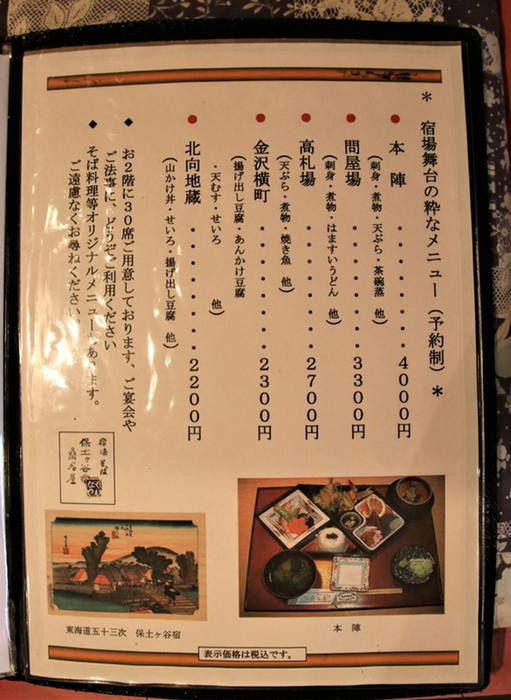 ＊ 宿場舞台の粋なメニュー（予約制）＊
● 本　陣・・・・・・・４０００円
（刺身・煮物・天ぷら・茶碗蒸　他）
● 問屋場・・・・・・・３３００円
（刺身・煮物・はますいうどん　他）
● 高札場・・・・・・・２７００円
（天ぷら・煮物・焼き魚　他）
● 金沢横町・・・・・・２３００円
（揚げ出し豆腐・あんかけ豆腐
・天むす・せいろ　他）
● 北向地蔵・・・・・・２２００円
（山かけ丼・せいろ・揚げ出し豆腐　他）
◆ お２階に３０席ご用意しております、ご宴会や
ご法事に、どうぞご利用ください
◆ そば料理等オリジナルメニューもあります。
ご遠慮なくお尋ねください。
宿場そば
保土ヶ谷宿
桑名屋
東海道五十三次　保土ヶ谷宿
本　陣
表示価格は税込です。